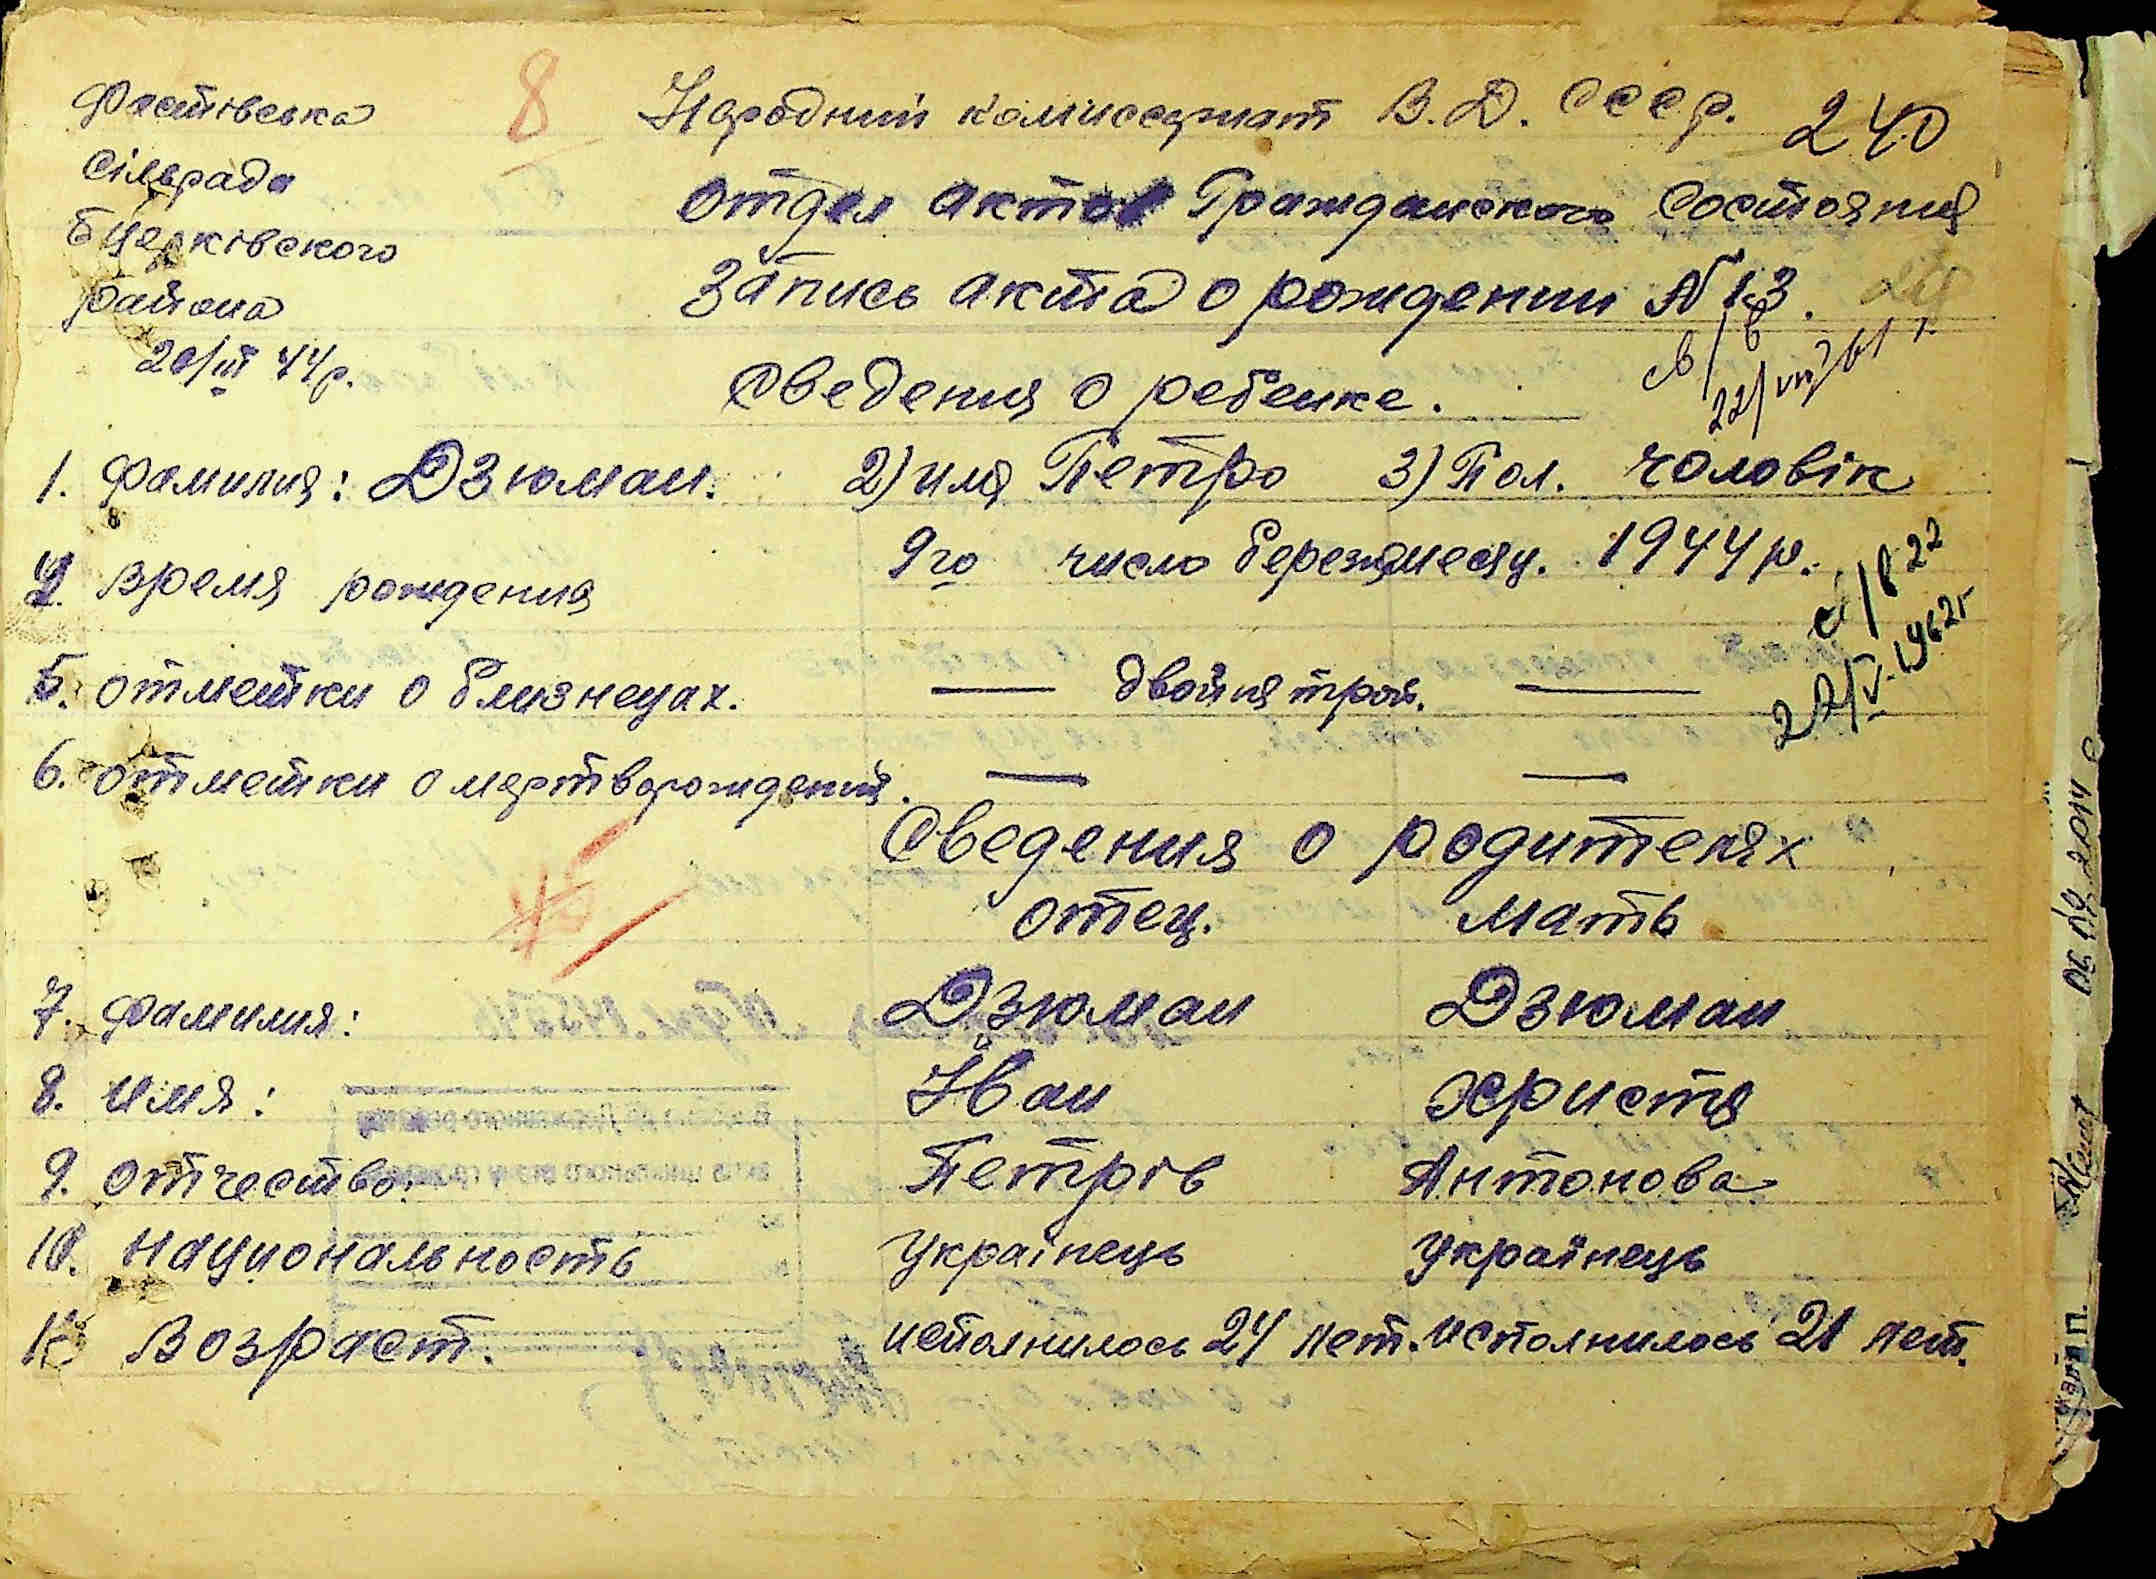 Фастівська
сільрада
Бцерківского
района
20/III 44р.
8
Народний комиссариат В.Д. СССР.
240
отдел актов Гражданского состояния
Запись акта о рождении № 13.
св/в
22/VII
Сведения о ребенке.
1. Фамилия: Дзюман. 2) имя Петро 3) Пол. чоловік
4. Время рождения 9го число березнямесяц. 1944 р.
22/V-1962г
5. отметки о близнецах. — двойня трой. —
6. отметки о мертворождении. — —
Сведения о родителях
отец. мать
7. Фамилия: Дзюман Дзюман
8. имя: Иван Христя
9. отчество: Петрів Антонова
10. национальность Українець Українець
11. Возраст. исполнилось 24 лет. исполнилось 21 лет.